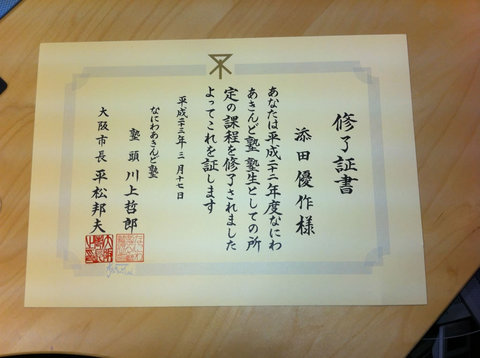 修了証書
添田優作様
あなたは平成二十二年度なにわ
あきんど塾塾生としての所
定の課程を修了されました
よってこれを証します
平成二十三年三月十七日
なにわあきんど塾
塾頭 川上哲郎
大阪市長 平松邦夫